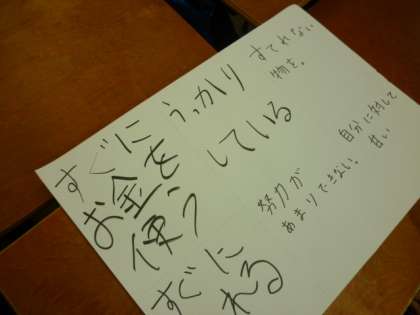 すぐに
お金を、
使う
うっかり
している
すてれない
物を。
努力が
あまりできない。
自分に対して
甘い
すぐに
れる